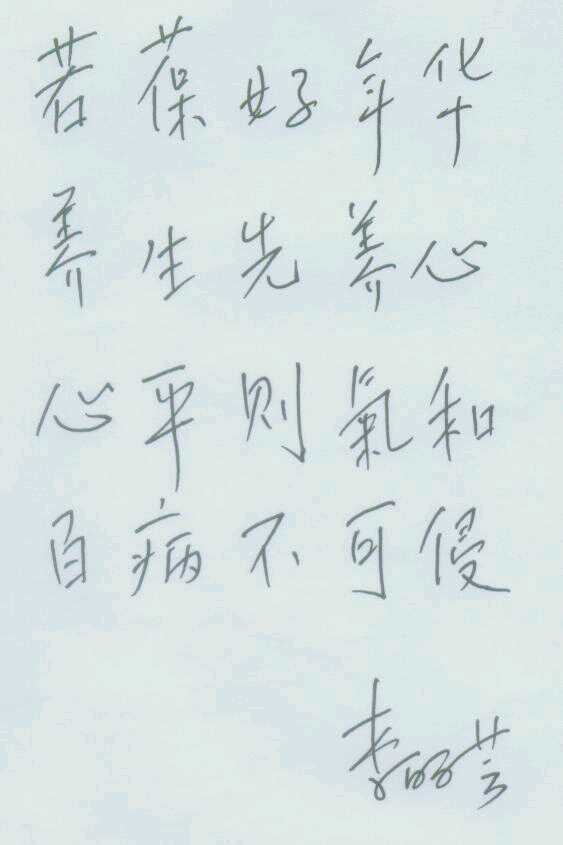 若葆好年华
养生先养心
心平则氣和
百病不可侵
李